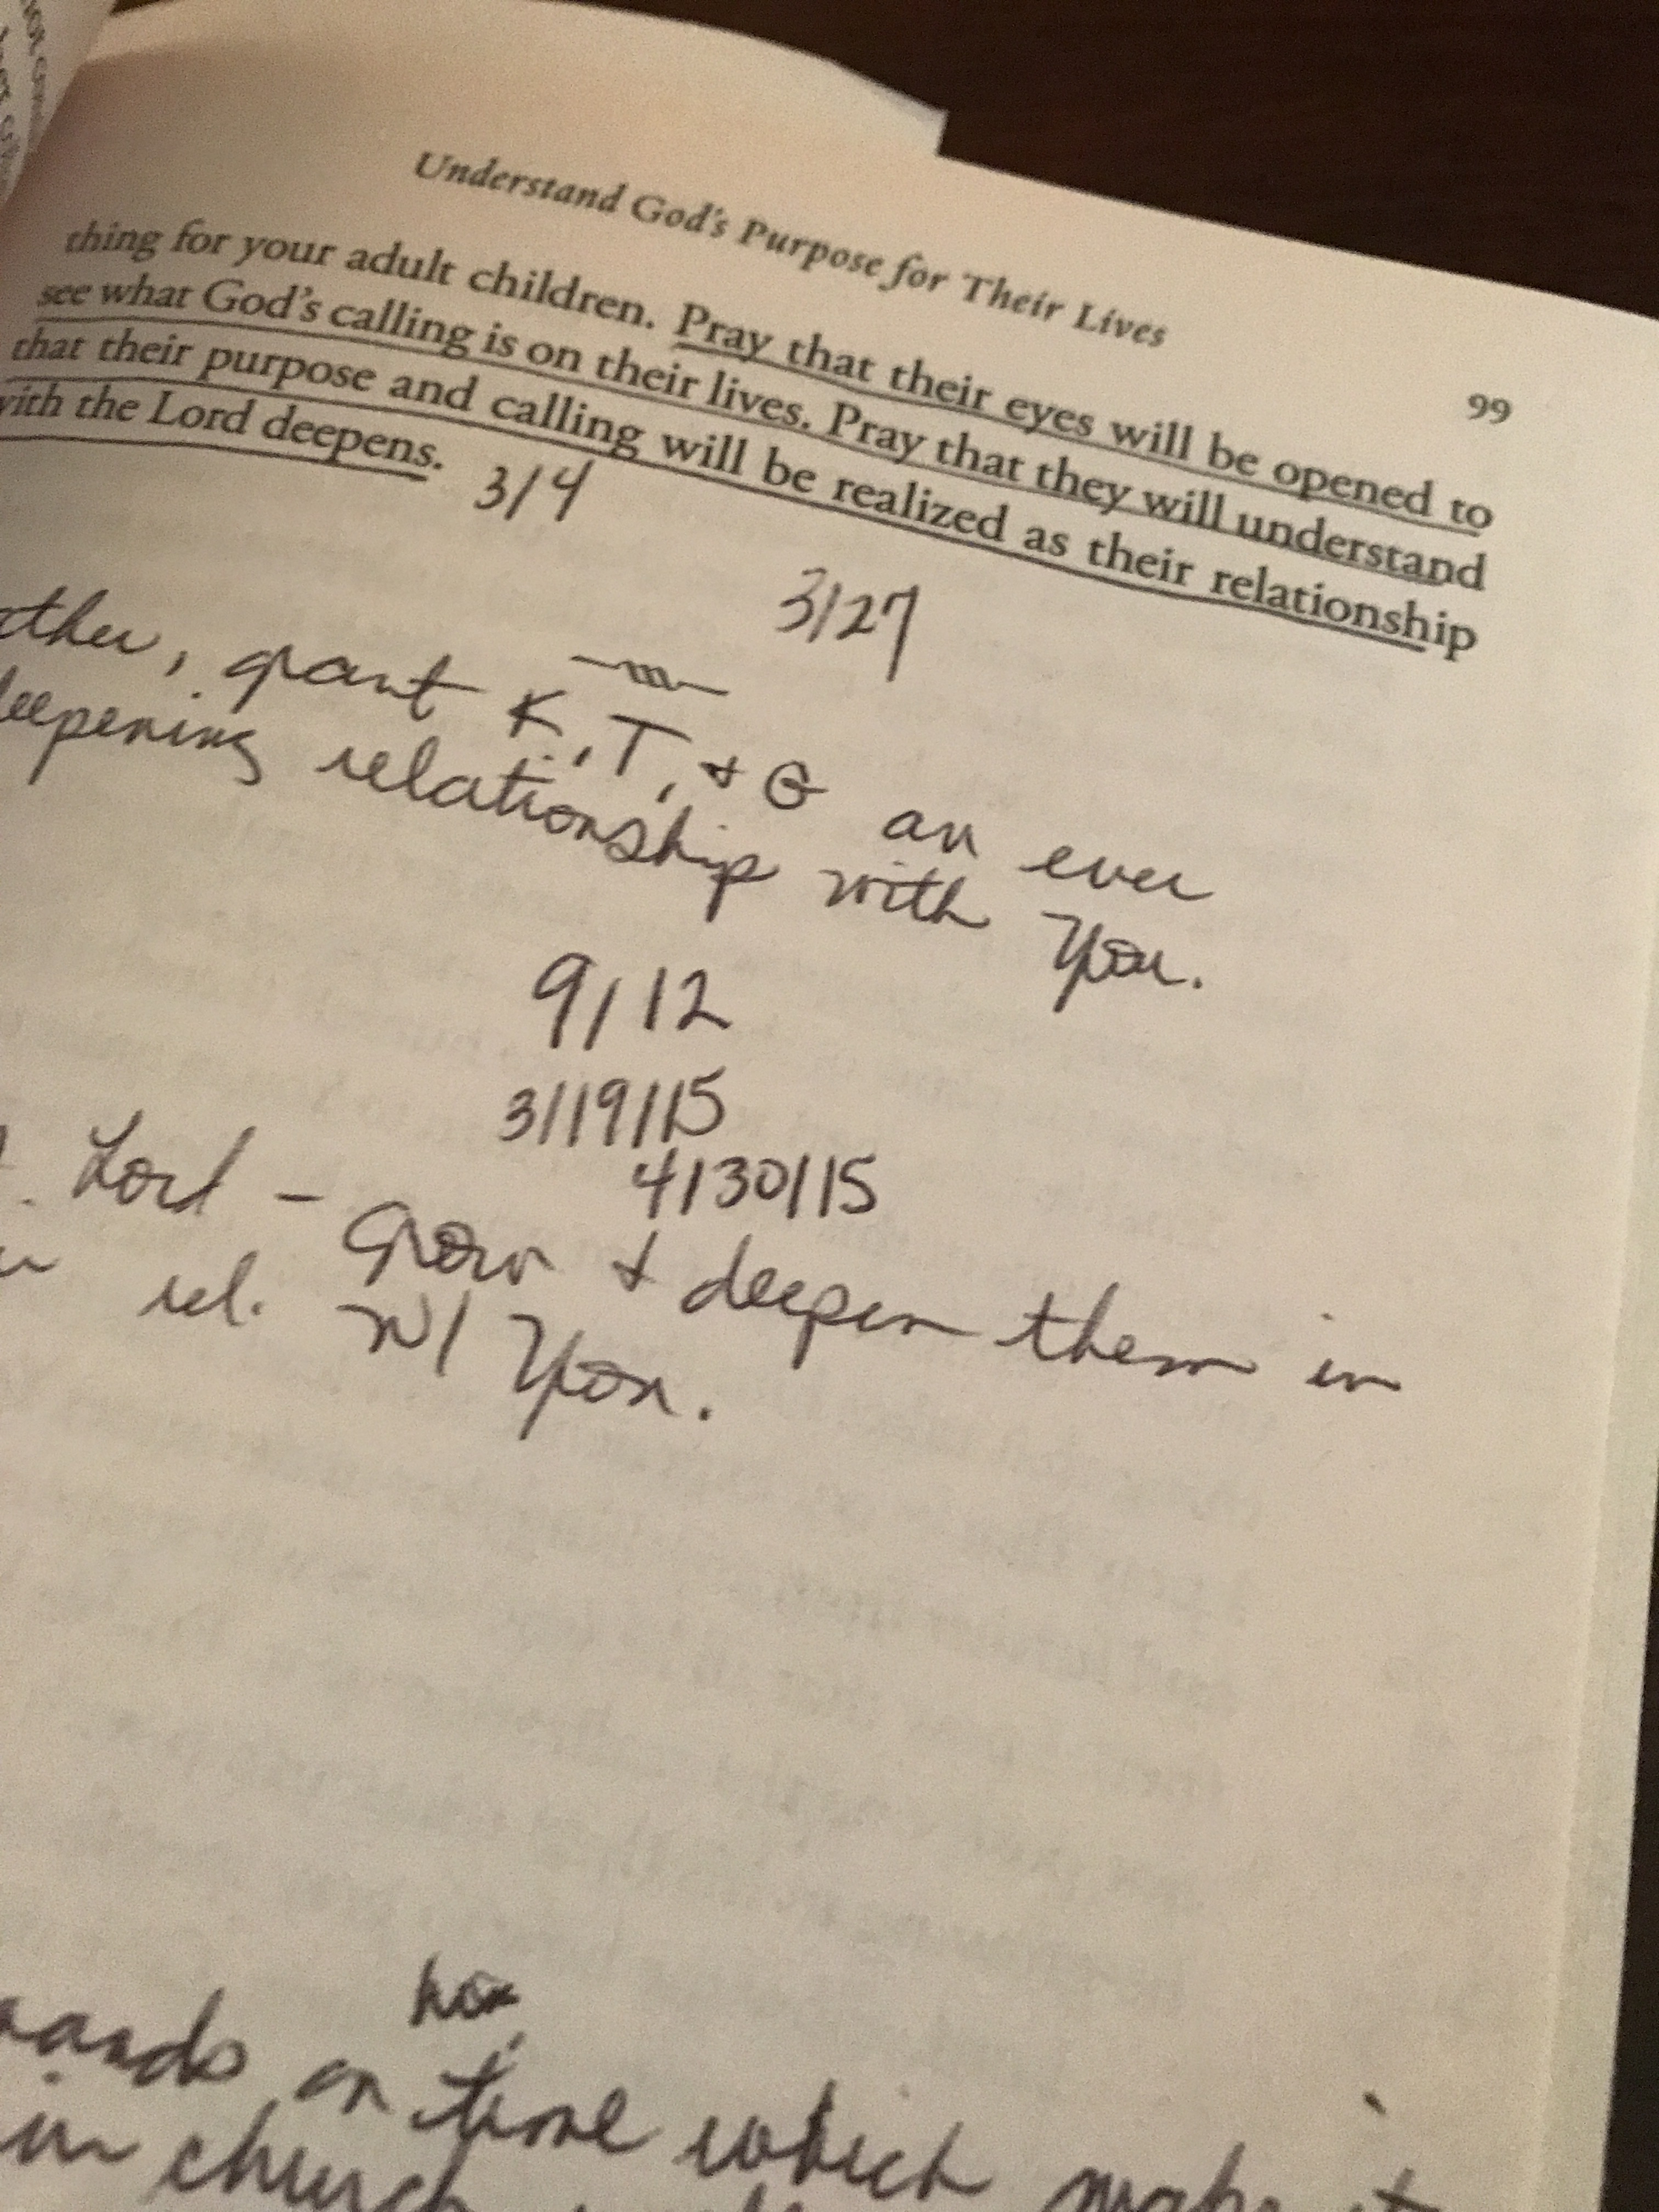 Understand God's Purpose for Their Lives
99
thing for your adult children. Pray that their eyes will be opened to
see what God's calling is on their lives. Pray that they will understand
that their purpose and calling will be realized as their relationship
with the Lord deepens. 3/4
3/27
ather, grant K, T, + G an ever
deepening relationship with You.
9/12
3/19/15
4/30/15
Lord - Grow + deepen them in
rel. w/ You.
on time which make it
in church